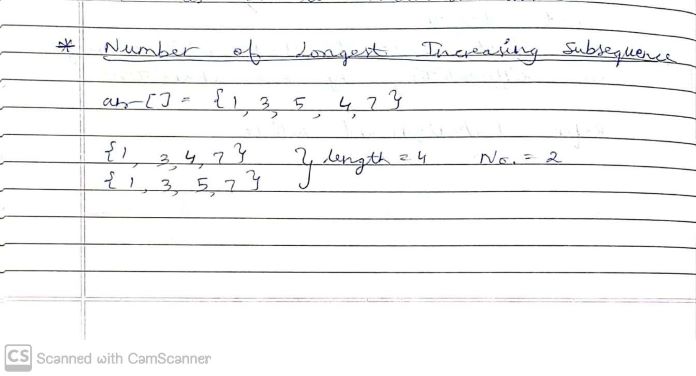 * Number of Longest Increasing Subsequence
arr[] = {1, 3, 5, 4, 7}
{1, 3, 4, 7} } length = 4 No. = 2
{1, 3, 5, 7}
CS Scanned with CamScanner